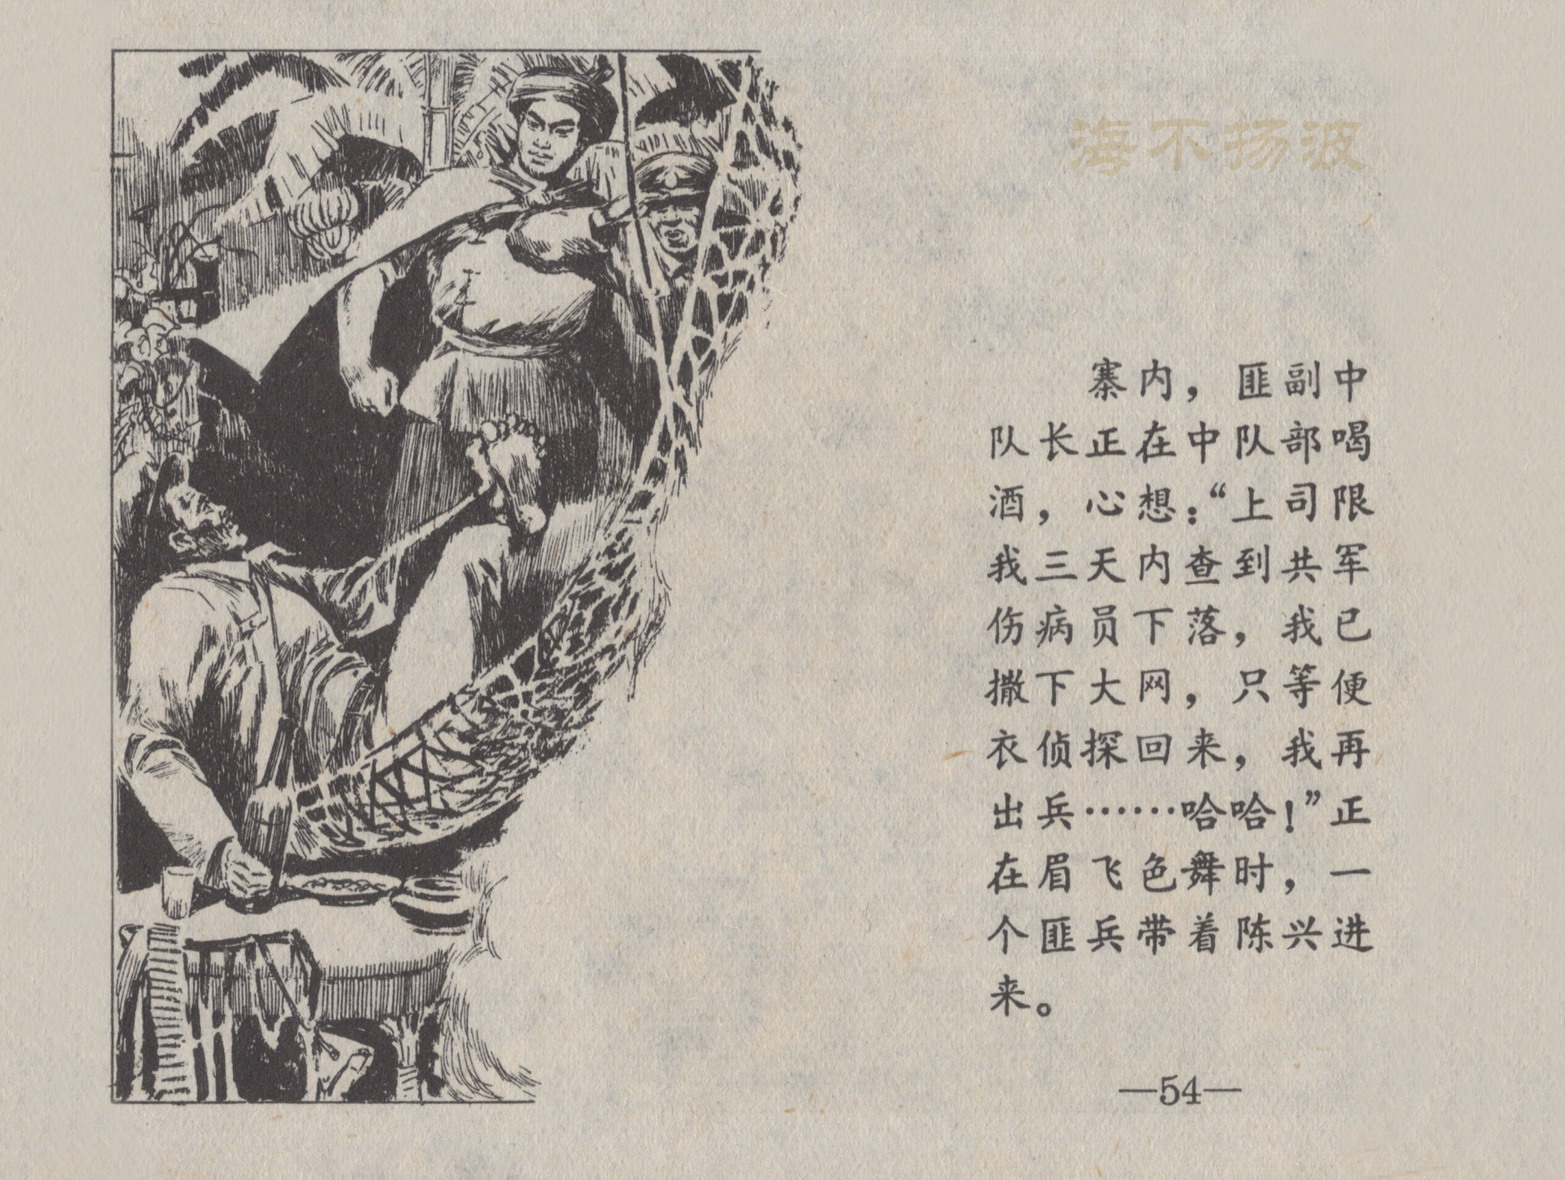 海不扬波
寨内，匪副中
队长正在中队部喝
酒，心想：“上司限
我三天内查到共军
伤病员下落，我已
撒下大网，只等便
衣侦探回来，我再
出兵……哈哈！”正
在眉飞色舞时，一
个匪兵带着陈兴进
来。
—54—